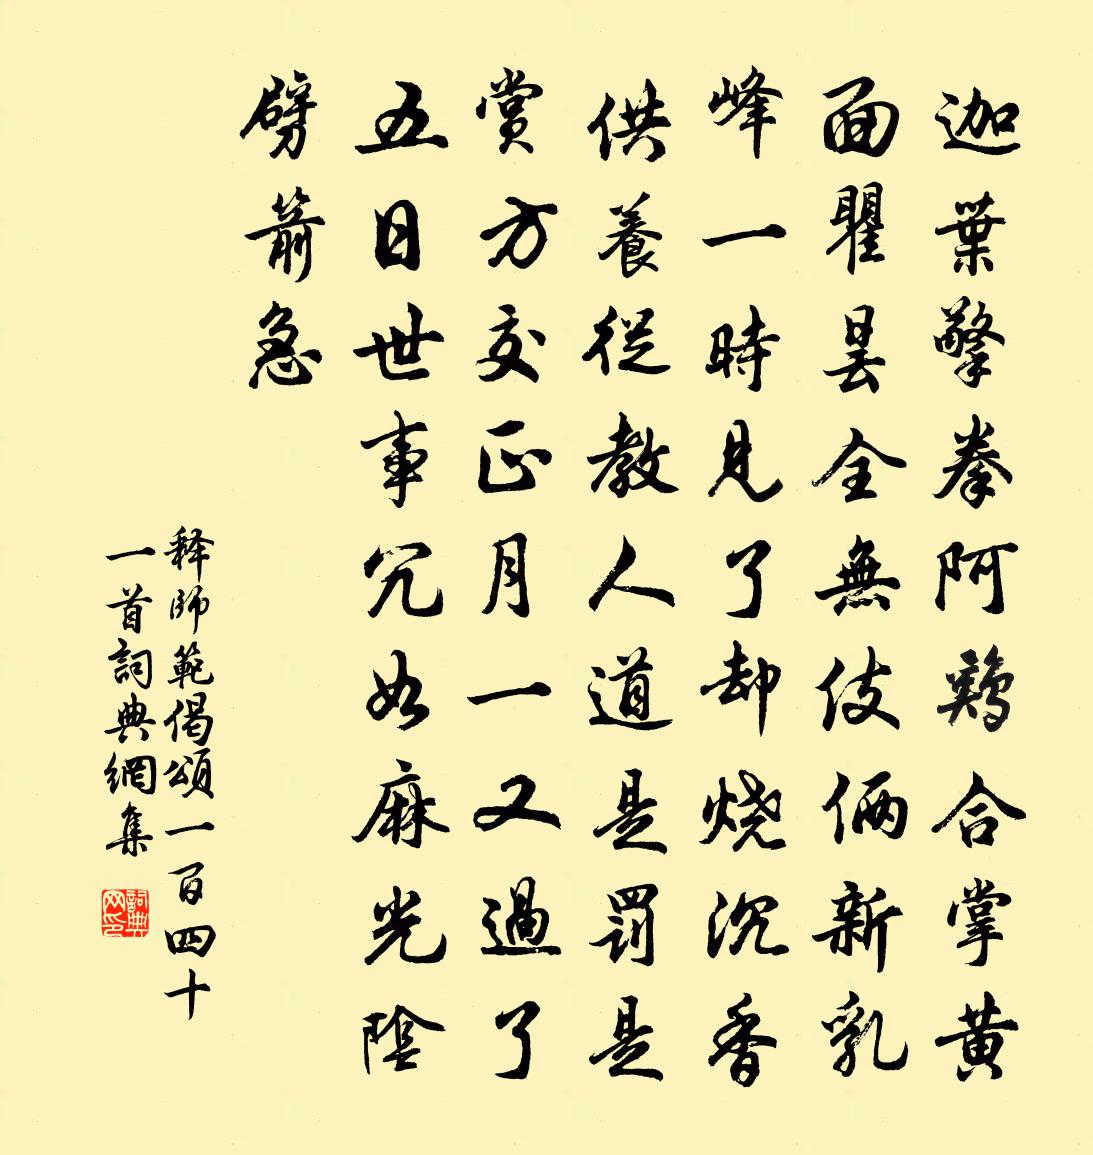 迦葉擎拳阿鷄合掌黄
面瞿曇全無伎倆新乳
峰一時見了却燒沉香
供養從教人道是罰是
賞方交正月一又過了
五日世事冗如麻光陰
劈箭急
释師範偈頌一百四十
一首詞典網集
詞典网印